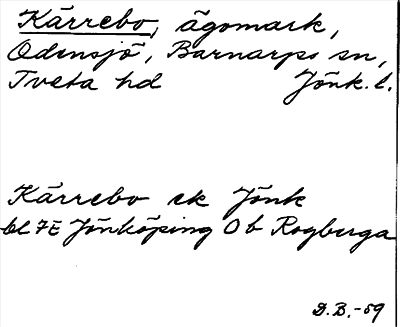 Kärrebo, ägomark,
Odensjö, Barnarps sn,
Tveta hd Jönk. l.
Kärrebo ek Jönk
bl 7E Jönköping O b Rogberga
D.B.-59